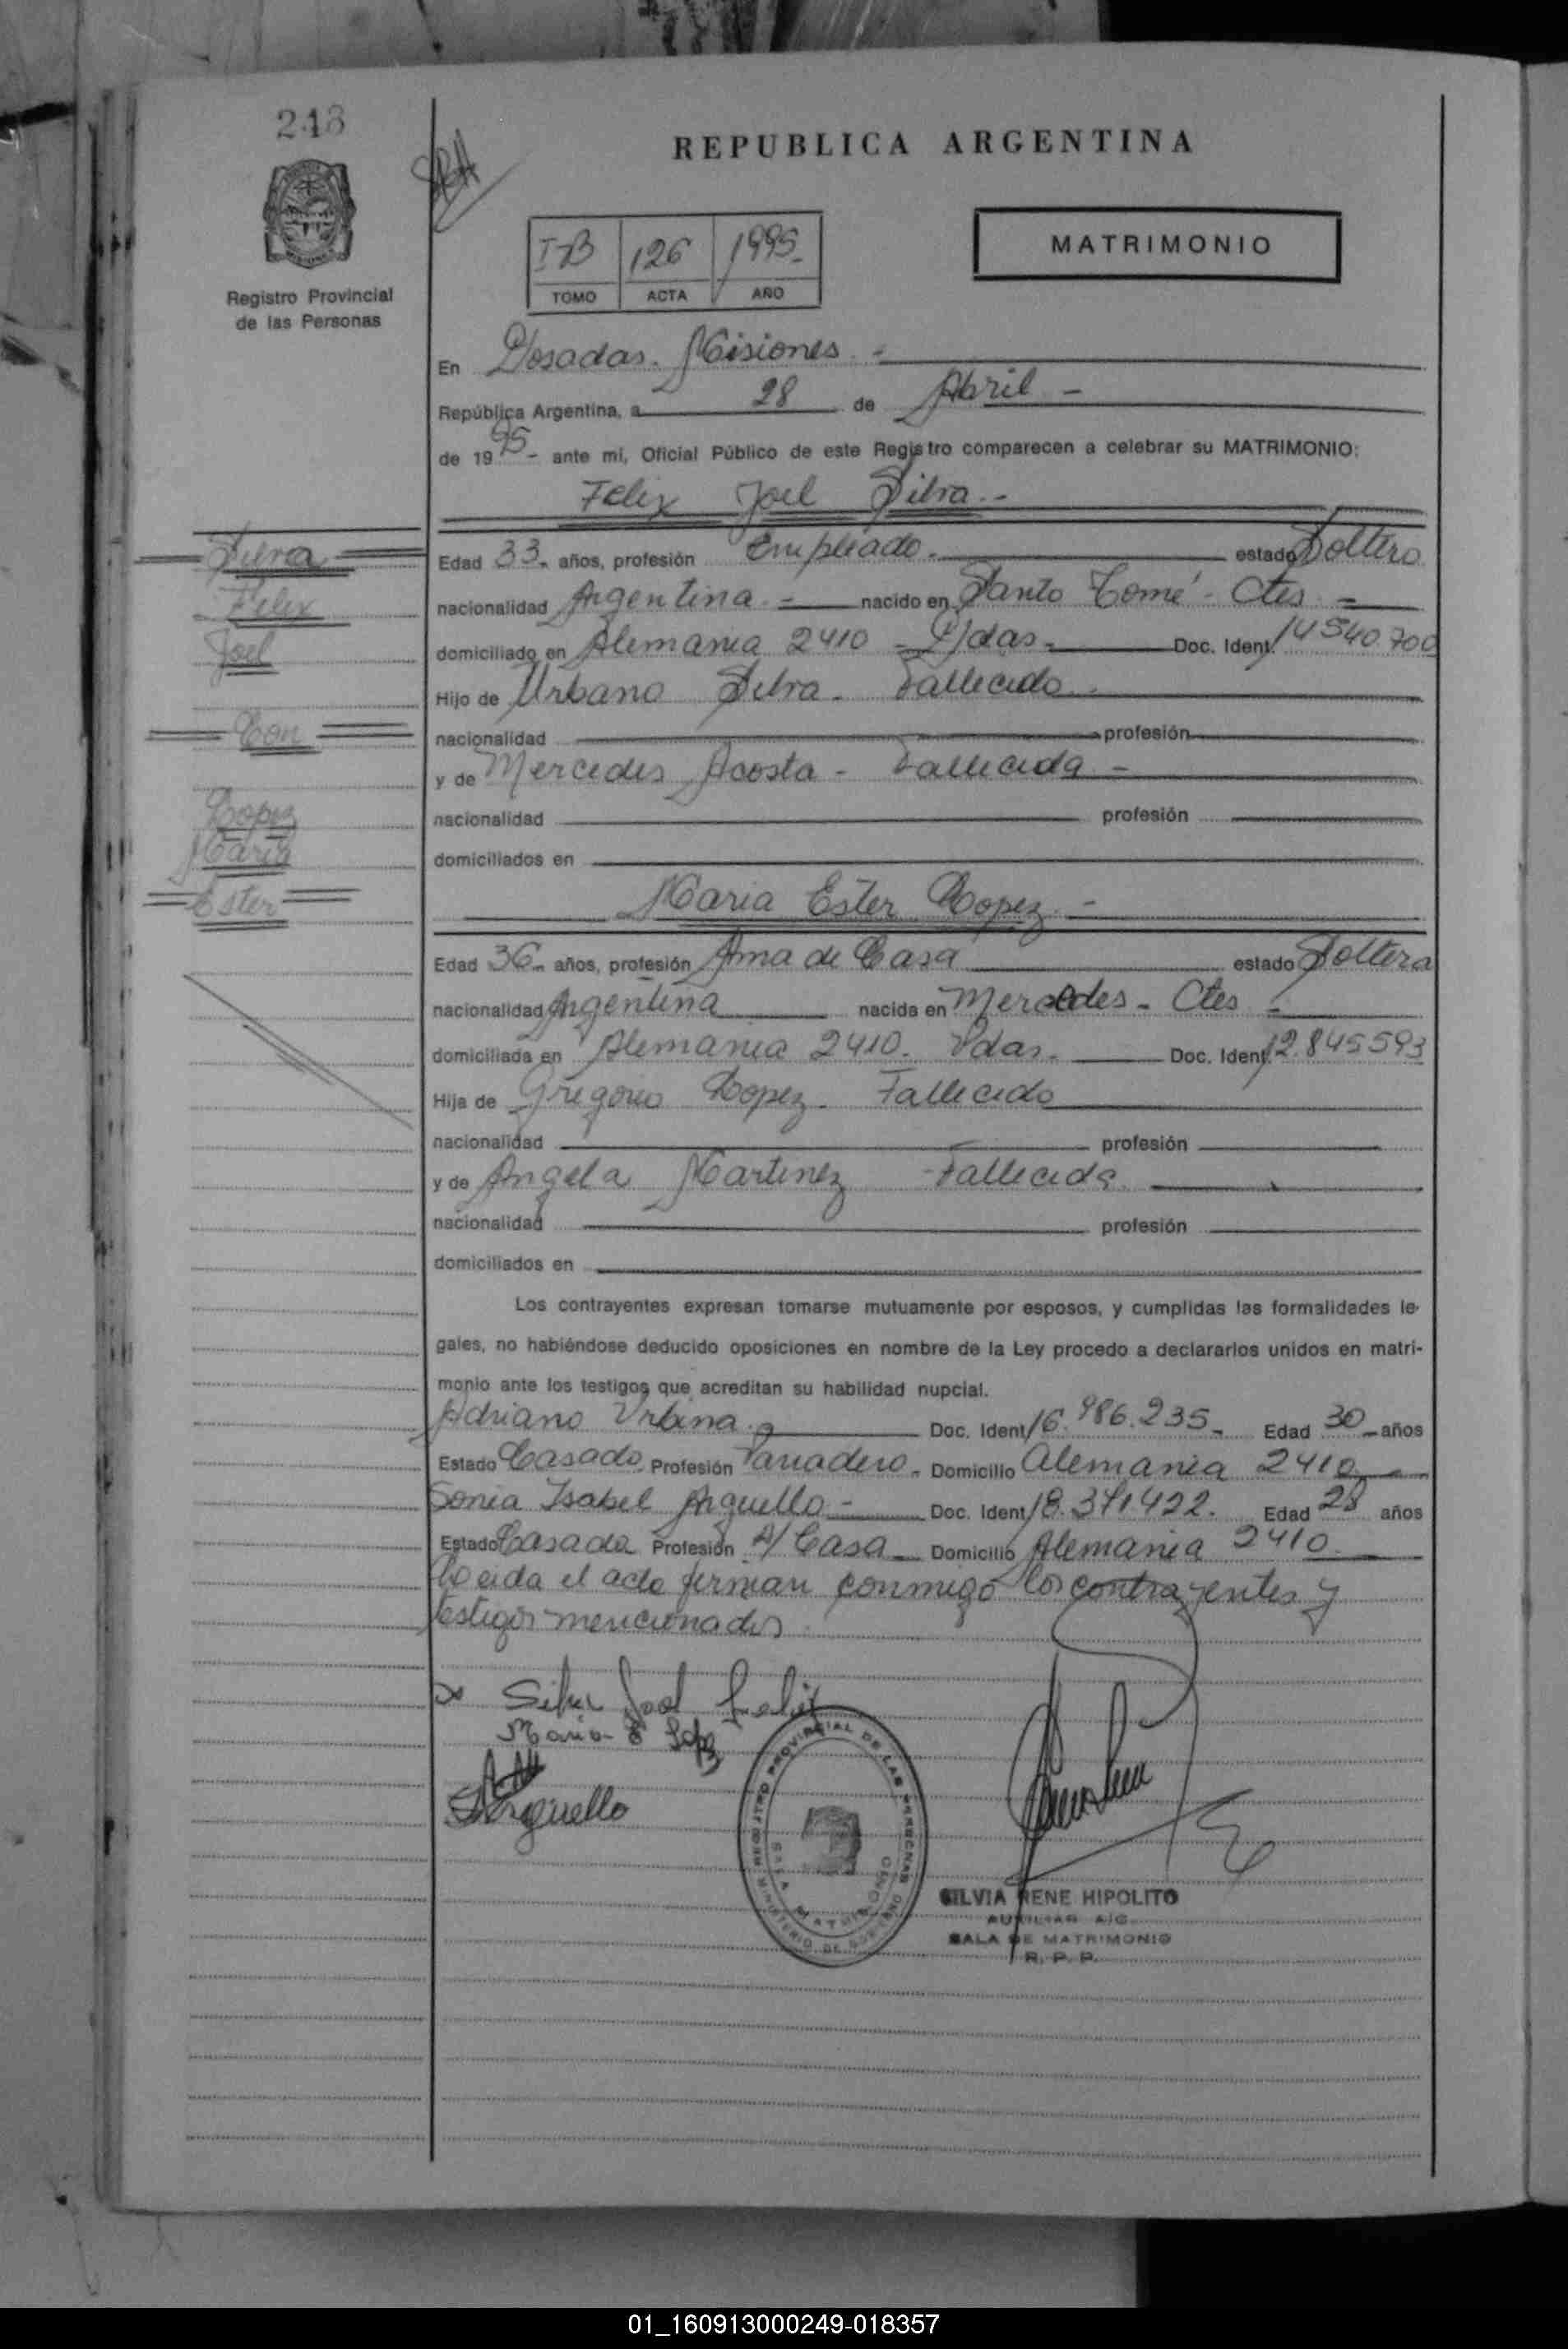 248
REPUBLICA ARGENTINA
I-B 126 1995
TOMO ACTA AÑO
MATRIMONIO
Registro Provincial
de las Personas
En Posadas. Misiones -
República Argentina, a 28 de Abril -
de 1995- ante mí, Oficial Público de este Registro comparecen a celebrar su MATRIMONIO:
Felix Joel Silva.-
Silva
Felix
Joel
Con
Lopez
Maria
Ester
Edad 33. años, profesión Empleado. estado Soltero
nacionalidad Argentina - nacido en Santo Tomé - Ctes -
domiciliado en Alemania 2410 - Pdas - Doc. Ident. 14540.700
Hijo de Urbano Silva. Fallecido.
nacionalidad profesión
y de Mercedes Acosta - Fallecida -
nacionalidad profesión
domiciliados en
Maria Ester Lopez -
Edad 36. años, profesión Ama de Casa estado Soltera
nacionalidad Argentina nacida en Mercedes - Ctes -
domiciliada en Alemania 2410. Pdas. Doc. Ident. 12.845593
Hija de Gregorio Lopez. Fallecido
nacionalidad profesión
y de Angela Martinez - Fallecida
nacionalidad profesión
domiciliados en
Los contrayentes expresan tomarse mutuamente por esposos, y cumplidas las formalidades le-
gales, no habiéndose deducido oposiciones en nombre de la Ley procedo a declararlos unidos en matri-
monio ante los testigos que acreditan su habilidad nupcial.
Adriano Urbina. Doc. Ident. 16.986.235- Edad 30 años
Estado Casado Profesión Panadero. Domicilio Alemania 2410
Sonia Isabel Arguello - Doc. Ident. 18.371422. Edad 28 años
Estado Casada Profesión A/ Casa Domicilio Alemania 2410
Leida el acta firman conmigo los contrayentes y
testigos mencionados
Silva Joel Felix
Maria E Lopez
Arguello
REGISTRO PROVINCIAL DE LAS PERSONAS
SALA MATRIMONIO
MINISTERIO DE GOBIERNO
SILVIA IRENE HIPOLITO
AUXILIAR A/C
SALA DE MATRIMONIO
R. P. P.
01_160913000249-018357